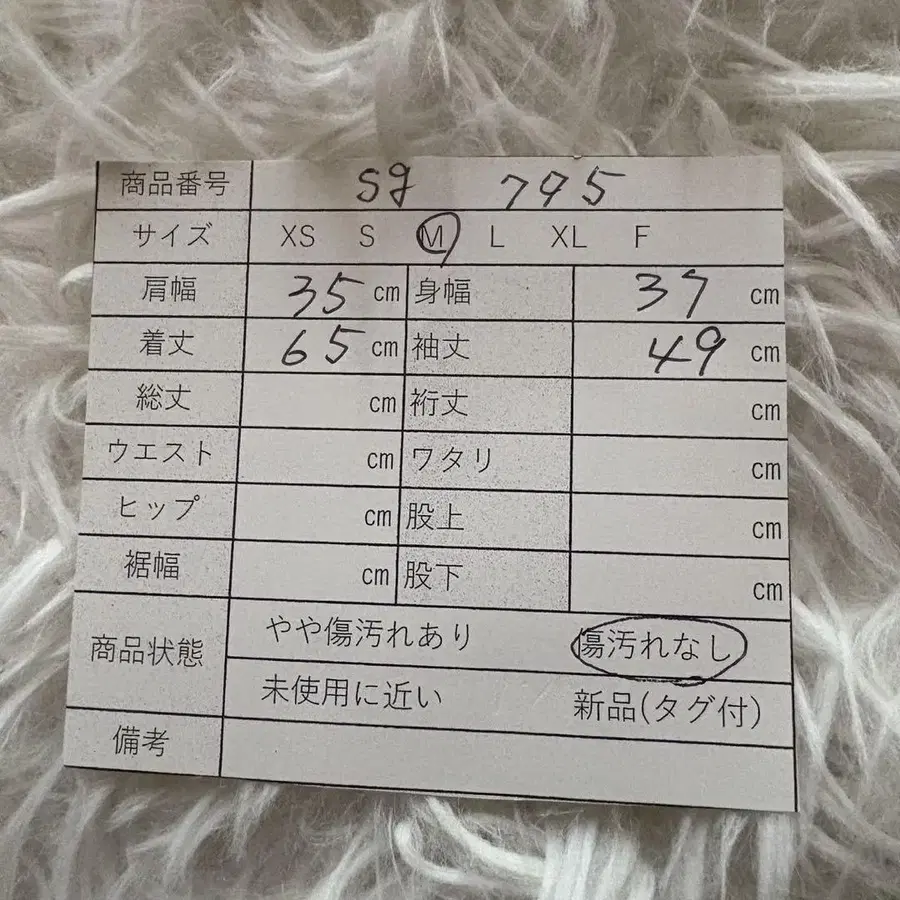 商品番号 sg 795
サイズ XS S M L XL F
肩幅 35 cm 身幅 37 cm
着丈 65 cm 袖丈 49 cm
総丈 cm 裄丈 cm
ウエスト cm ワタリ cm
ヒップ cm 股上 cm
裾幅 cm 股下 cm
商品状態 やや傷汚れあり 傷汚れなし
未使用に近い 新品(タグ付)
備考